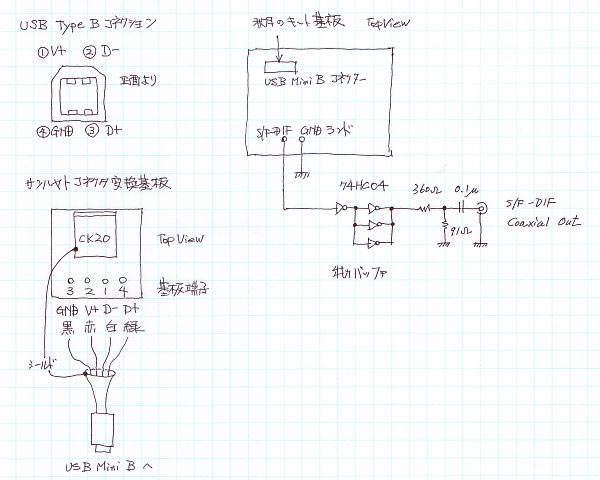 USB Type B コネクション
①V+ ②D-
正面より
④GND ③D+
サンハヤトコネクタ変換基板
CK20
Top View
3 2 1 4
基板端子
GND V+ D- D+
黒 赤 白 緑
シールド
USB Mini B へ
秋月のキット基板 Top View
USB Mini B コネクター
S/P-DIF GND ランド
74HC04
360Ω 0.1μ
91Ω
S/P-DIF
Coaxial Out
出力バッファ